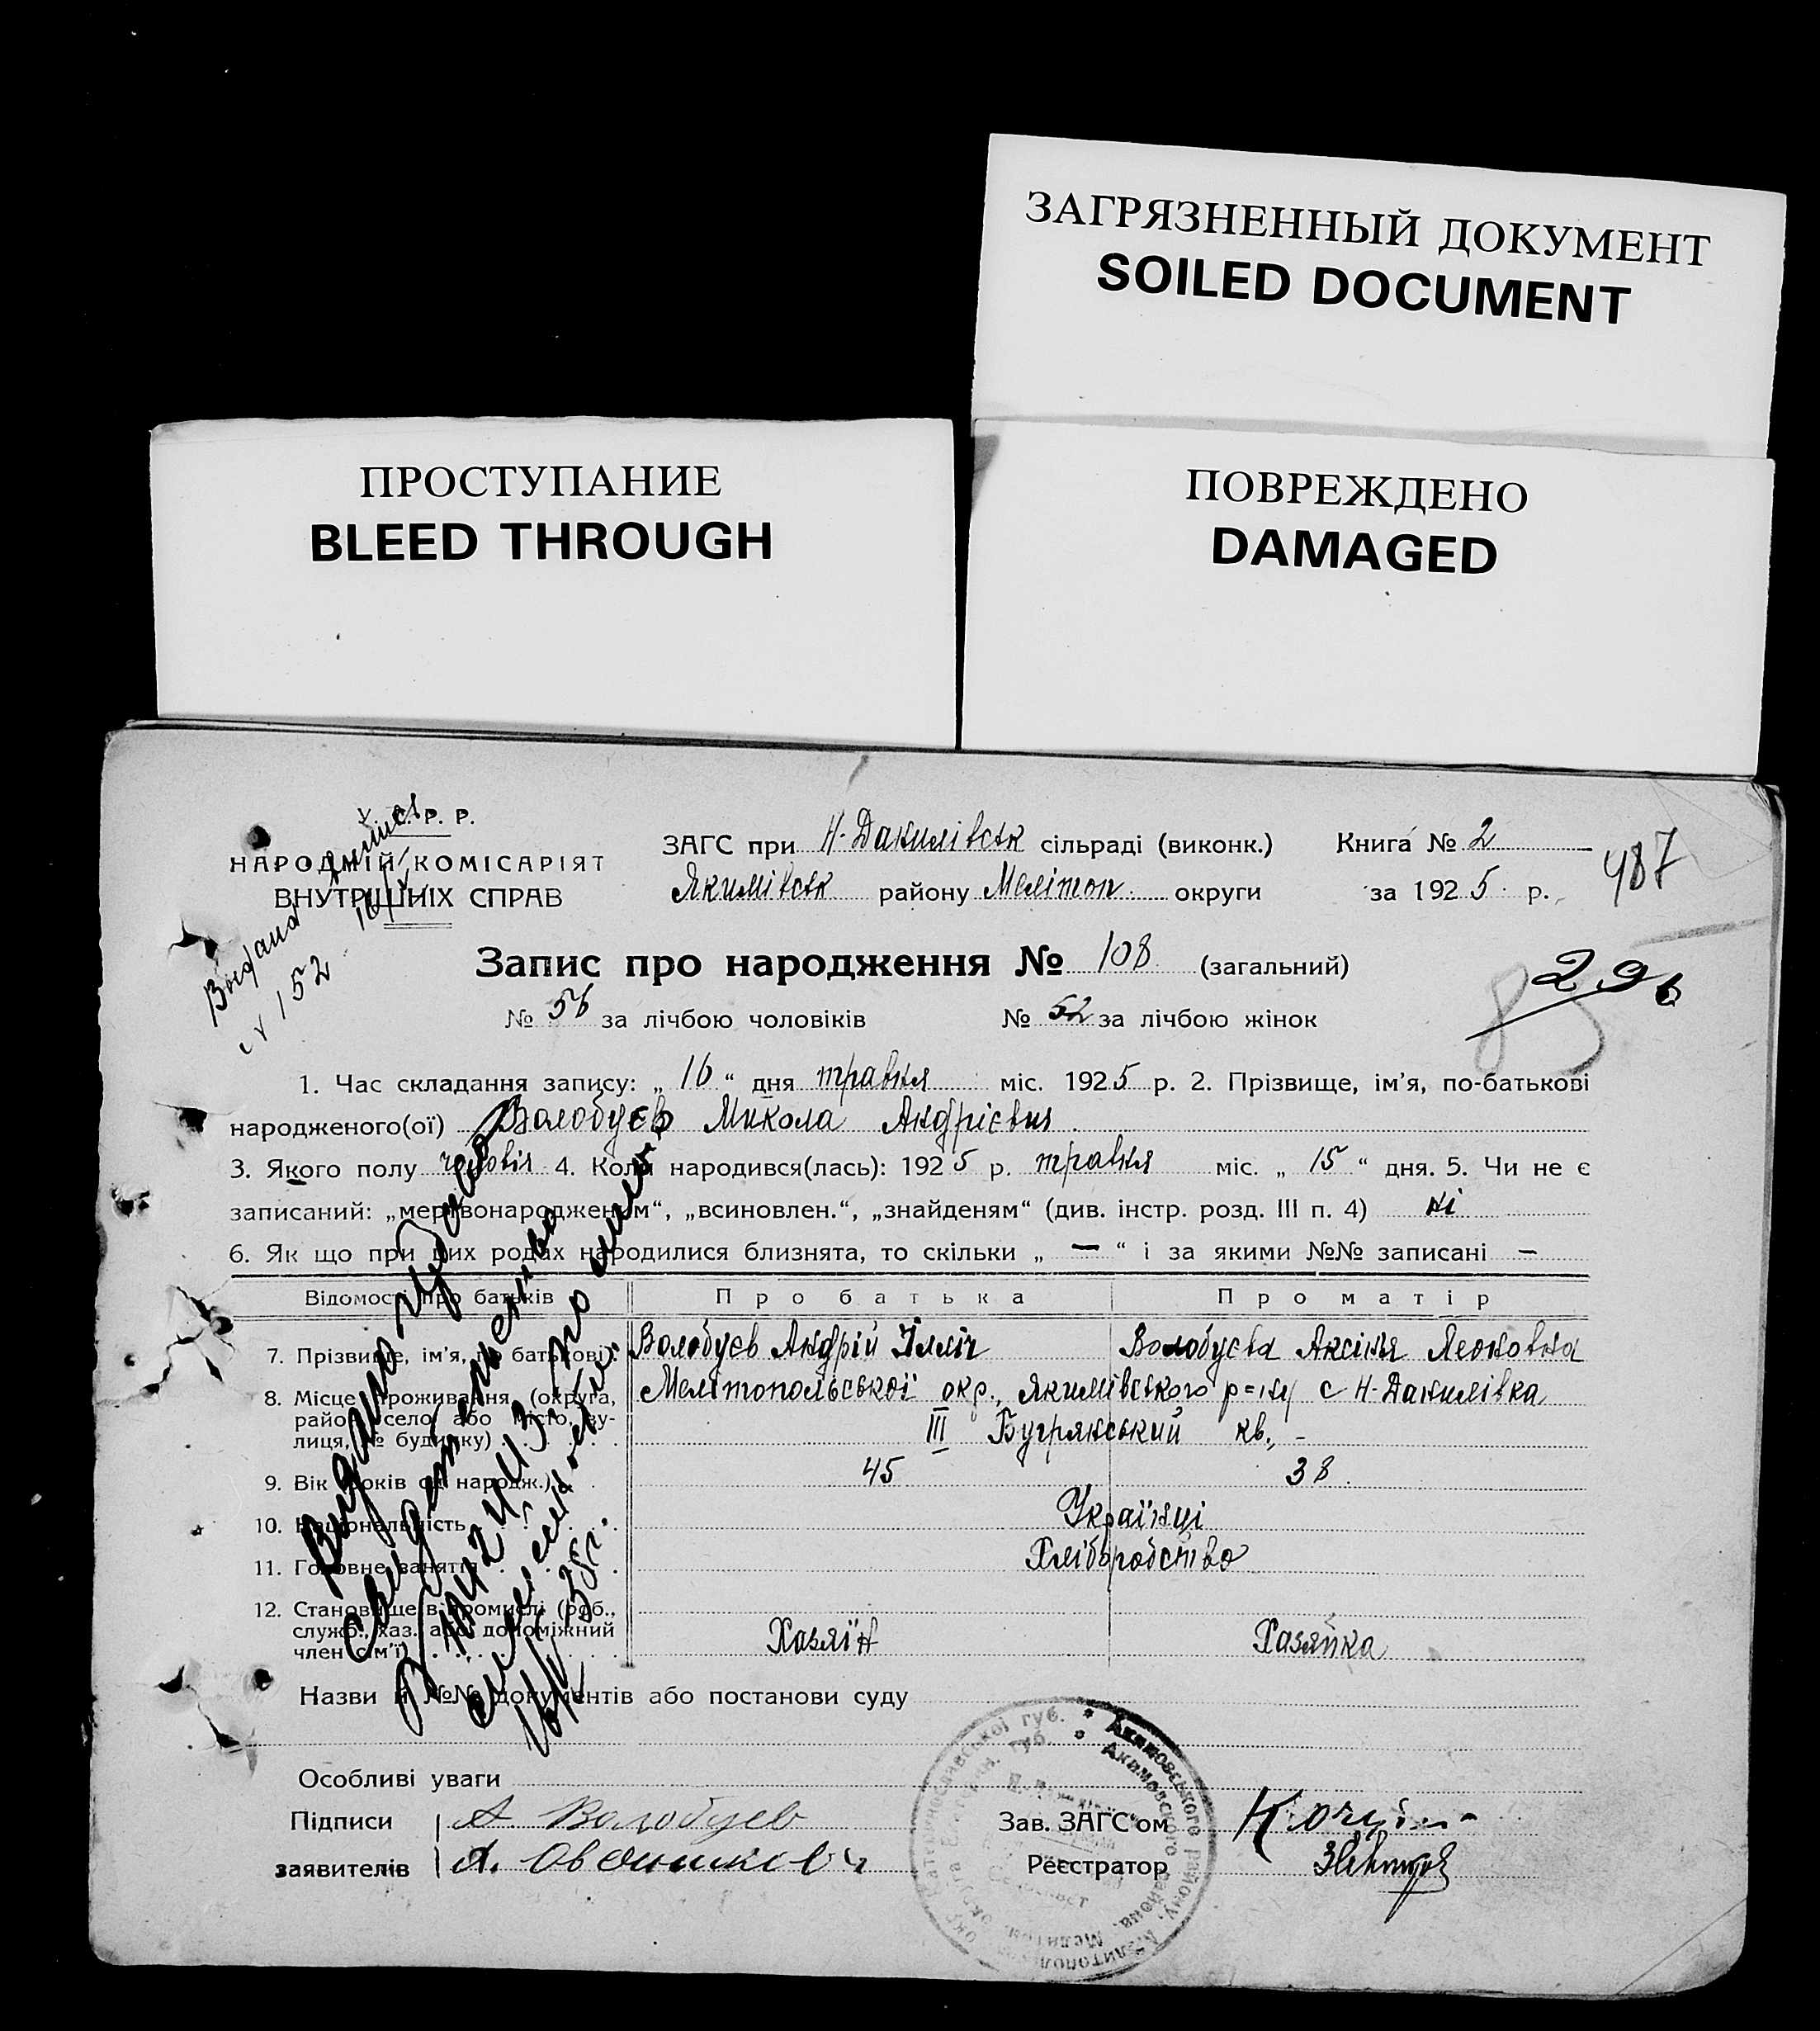 ЗАГРЯЗНЕННЫЙ ДОКУМЕНТ
SOILED DOCUMENT
ПРОСТУПАНИЕ
BLEED THROUGH
ПОВРЕЖДЕНО
DAMAGED
У. С. Р. Р.
НАРОДНІЙ КОМІСАРІЯТ
ВНУТРІШНІХ СПРАВ
№ 152
ЗАГС при Н-Данилівськ сільраді (виконк.) Книга № 2
Якимівськ району Меліто﻿п. округи за 1925 р.
487
Запис про народження № 108 (загальний)
296
85
№ 56 за лічбою чоловіків № 52 за лічбою жінок
1. Час складання запису: „ 16 “ дня травня міс. 1925 р. 2. Прізвище, ім’я, по-батькові
народженого(ої) Волобуєв Микола Андрієвич
3. Якого полу чоловіч 4. Коли народився(лась): 1925 р. травня міс. „ 15 “ дня. 5. Чи не є
записаний: „мертвонародженим“, „всиновлен.“, „знайденям“ (див. інстр. розд. III п. 4) ні
6. Як що при цих родах народилися близнята, то скільки „ — “ і за якими №№ записані —
Відомості про батьків Про батька Про матір
7. Прізвище, ім’я, по батькові) Волобуєв Андрій Ілліч Волобуєва Аксінья Леоновна
8. Місце проживання (округа, Мелітопольської окр., Якимівського р=ну с Н-Данилівка
район, село або місто, ву-
лиця, № будинку) III Бугрянський кв., -
9. Вік (років од народж.) 45 38
10. Національність Українці
11. Головне заняття Хліборобство
12. Становище в промислі (роб.,
служб., хаз. або допоміжний
член сім’ї) Хазяїн Хазяйка
Назви й №№ документів або постанови суду
Особливі уваги
Підписи А. Волобуев Зав. ЗАГС’ом
заявителів А. Реєстратор